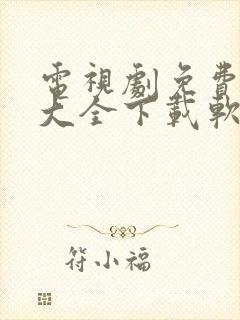 電視劇免費
大全下載軟
符小福